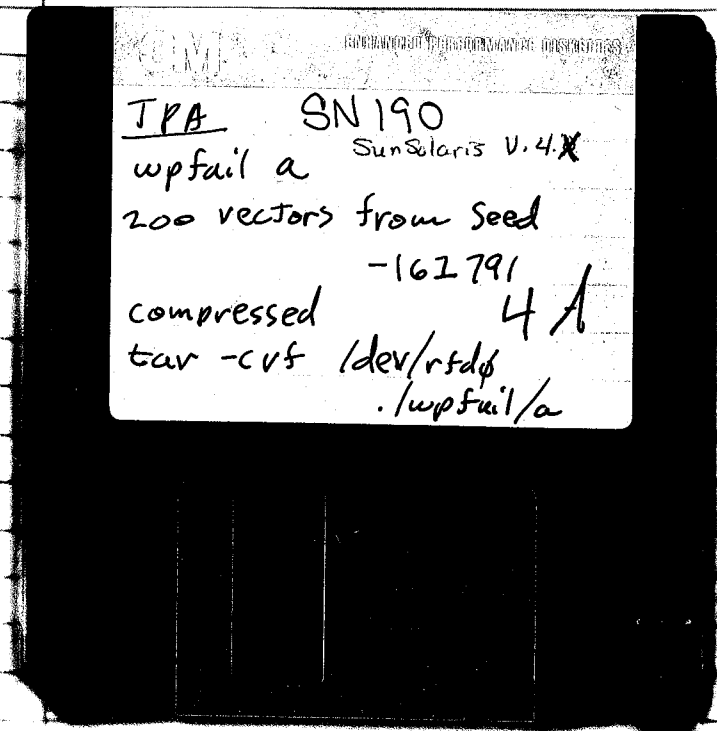 ENHANCED PERFORMANCE DISKETTES
JPA SN 190
SunSolaris V.4.X
wpfail a
200 vectors from Seed
-161791
compressed 4A
tar -cvf /dev/rfdø
./wpfail/a